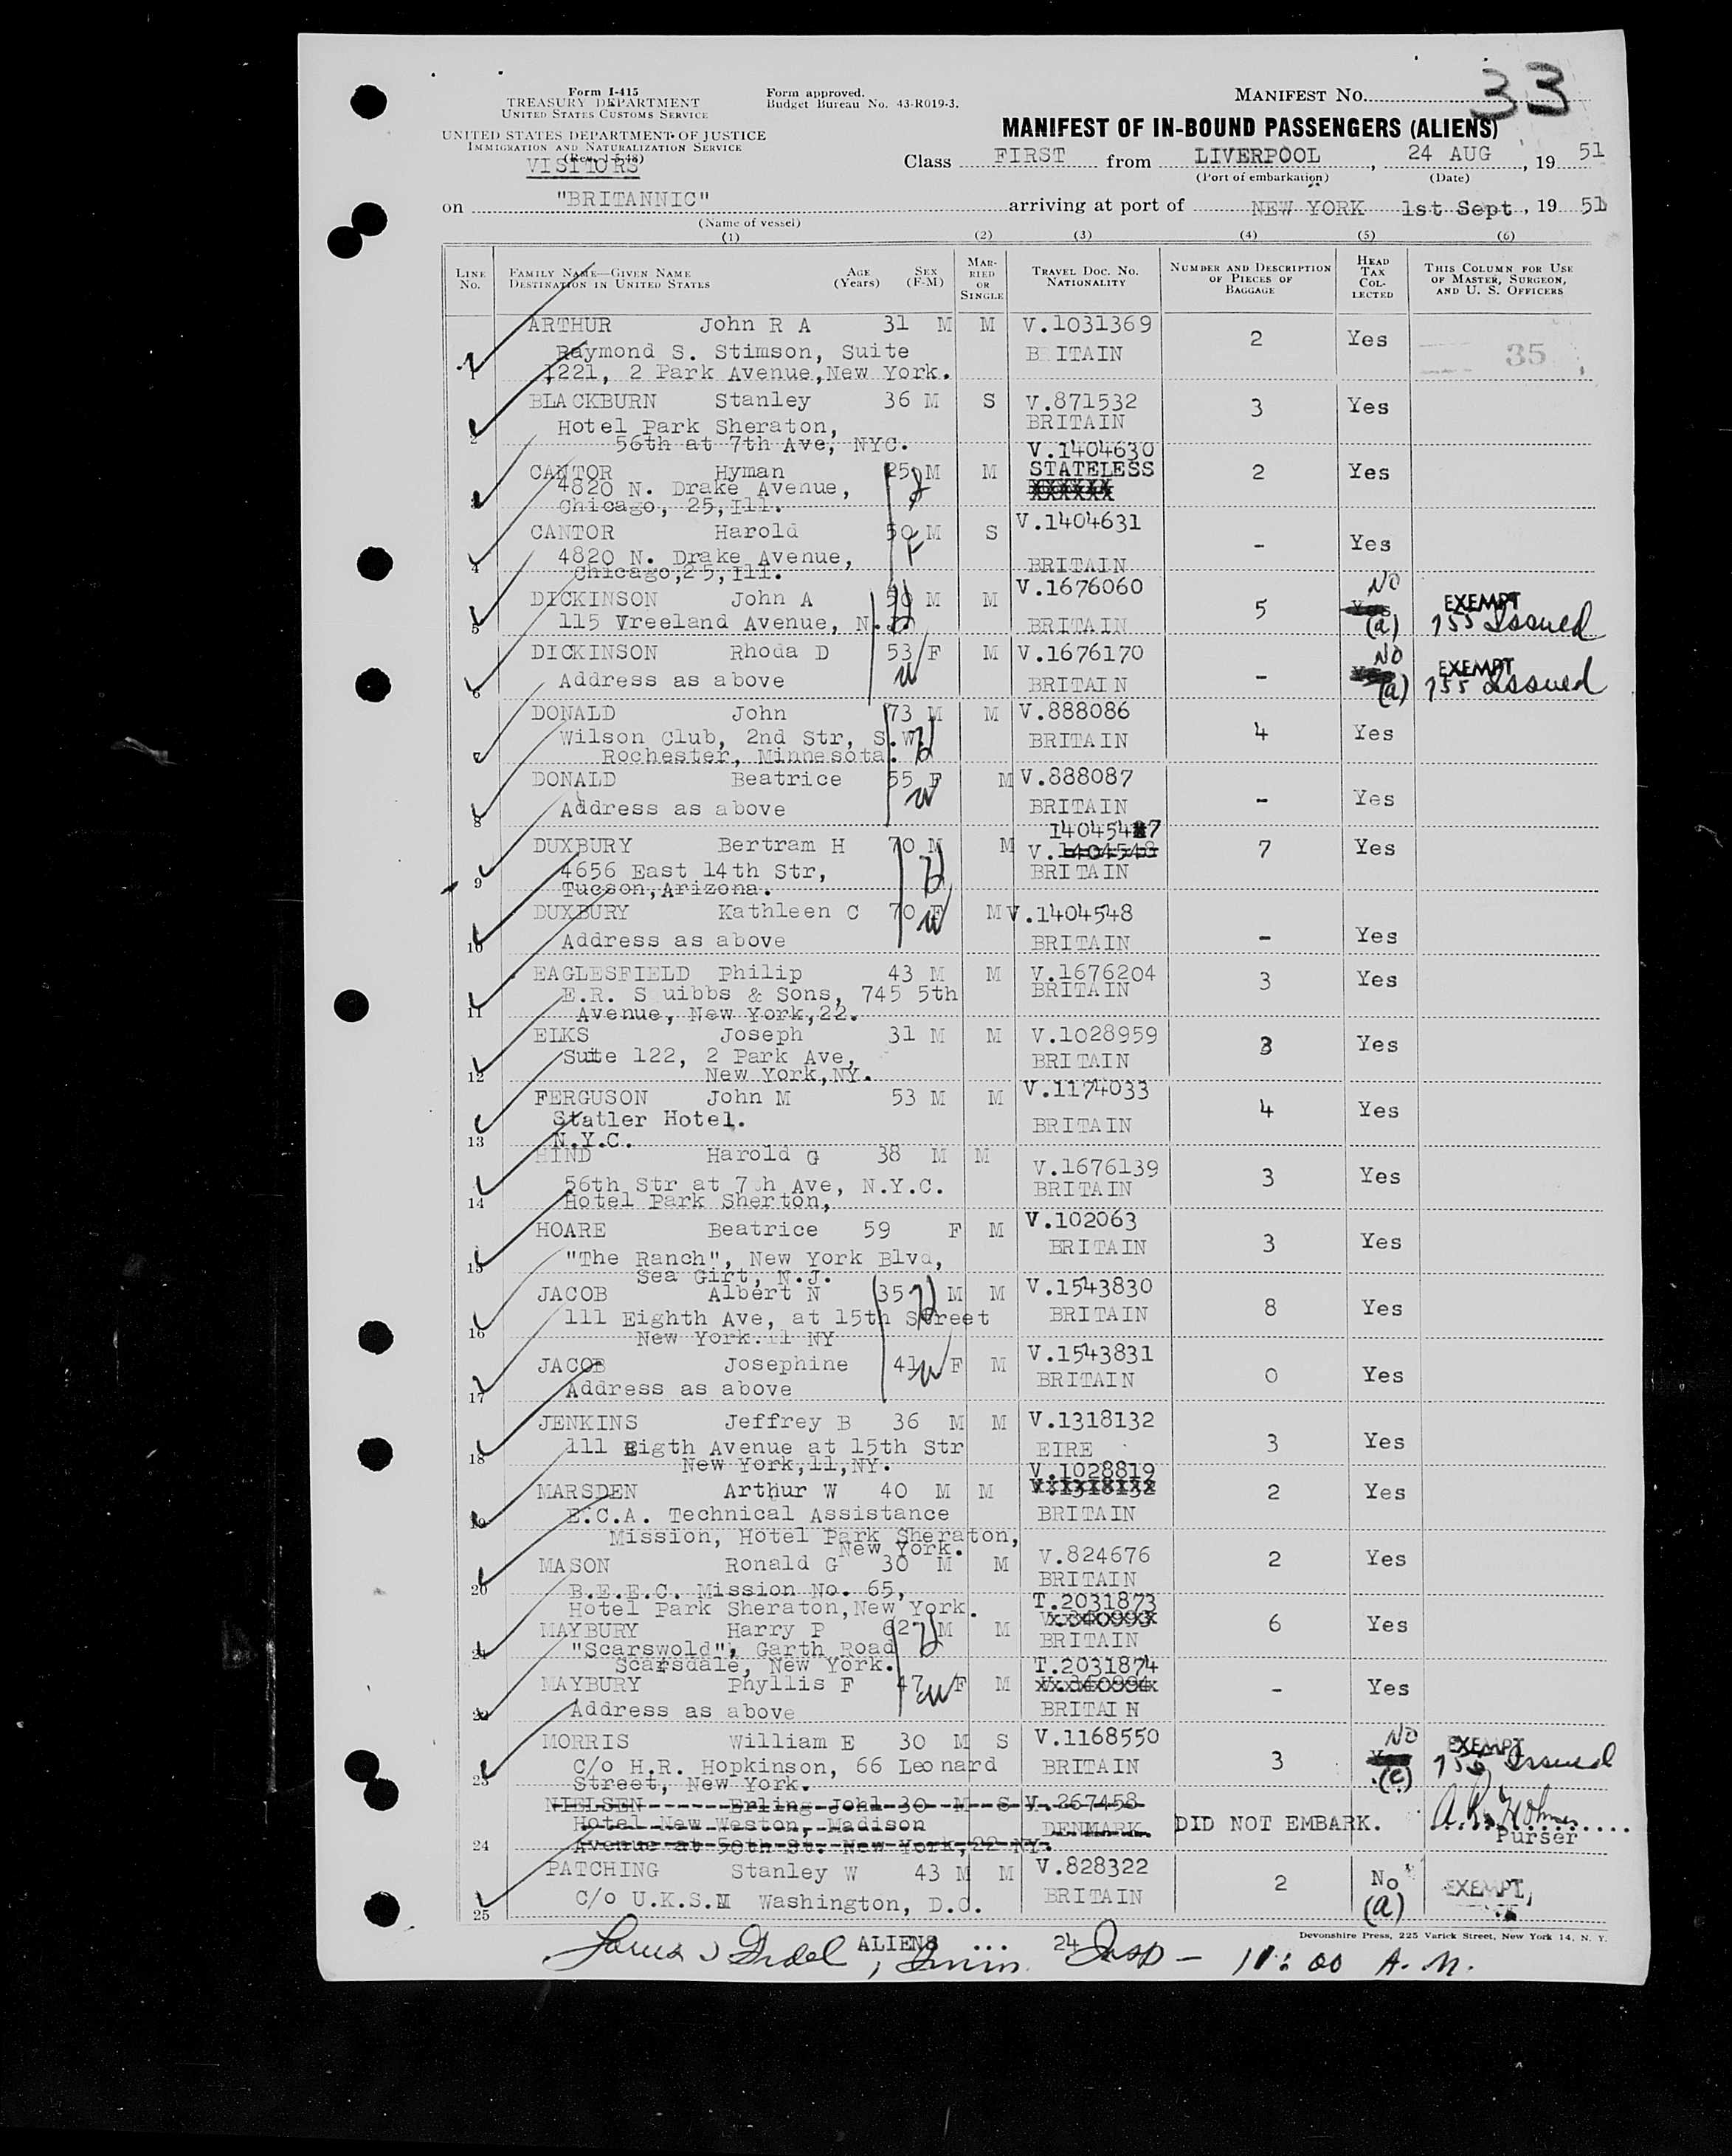 33
Form I-415
TREASURY DEPARTMENT
UNITED STATES CUSTOMS SERVICE
UNITED STATES DEPARTMENT OF JUSTICE
IMMIGRATION AND NATURALIZATION SERVICE
(Rev. 1-5-48)
VISITORS
Form approved.
Budget Bureau No. 43-R019-3.
MANIFEST NO.
MANIFEST OF IN-BOUND PASSENGERS (ALIENS)
Class FIRST from LIVERPOOL, 24 AUG, 19 51
(Port of embarkation) (Date)
on "BRITANNIC" arriving at port of NEW YORK 1st Sept, 19 51
(Name of vessel)
(1) (2) (3) (4) (5) (6)
LINE NO. FAMILY NAME—GIVEN NAME DESTINATION IN UNITED STATES AGE (Years) SEX (F-M) MARRIED OR SINGLE TRAVEL DOC. NO. NATIONALITY NUMBER AND DESCRIPTION OF PIECES OF BAGGAGE HEAD TAX COLLECTED THIS COLUMN FOR USE OF MASTER, SURGEON, AND U. S. OFFICERS
ARTHUR John R A 31 M M V.1031369 2 Yes 35
Raymond S. Stimson, Suite B ITAIN
1 1221, 2 Park Avenue, New York.
BLACKBURN Stanley 36 M S V.871532 3 Yes
Hotel Park Sheraton, BRITAIN
2 56th at 7th Ave, NYC.
V.1404630
CANTOR Hyman 25 M M STATELESS 2 Yes
4820 N. Drake Avenue, XXXXXX
Chicago, 25, Ill.
CANTOR Harold 50 M S V.1404631 - Yes
4820 N. Drake Avenue,
4 Chicago,25,Ill. BRITAIN
DICKINSON John A 50 M M V.1676060 5 NO (a) EXEMPT 755 Issued
5 115 Vreeland Avenue, N.J. BRITAIN
DICKINSON Rhoda D 53 F M V.1676170 - NO (a) EXEMPT 755 Issued
6 Address as above BRITAI N
DONALD John 73 M M V.888086 4 Yes
Wilson Club, 2nd Str, S.W. BRITAIN
Rochester, Minnesota.
DONALD Beatrice 55 F M V.888087 - Yes
8 Address as above BRITAIN
1404547
DUXBURY Bertram H 70 M M V.1404548 7 Yes
4656 East 14th Str, BRITAIN
9 Tucson,Arizona.
DUXBURY Kathleen C 70 F M V.1404548 - Yes
10 Address as above BRITAIN
EAGLESFIELD Philip 43 M M V.1676204 3 Yes
E.R. S uibbs & Sons, 745 5th BRITAIN
11 Avenue, New York,22.
ELKS Joseph 31 M M V.1028959 3 Yes
Suite 122, 2 Park Ave, BRITAIN
12 New York,NY.
FERGUSON John M 53 M M V.1174033 4 Yes
Statler Hotel. BRITAIN
13 N.Y.C.
HIND Harold G 38 M M V.1676139 3 Yes
56th Str at 7 h Ave, N.Y.C. BRITAIN
14 Hotel Park Sherton,
HOARE Beatrice 59 F M V.102063 3 Yes
15 "The Ranch", New York Blvd, BRITAIN
Sea Girt, N.J.
JACOB Albert N 35 M M V.1543830 8 Yes
111 Eighth Ave, at 15th Street BRITAIN
16 New York.11 NY
JACOB Josephine 41 F M V.1543831 0 Yes
17 Address as above BRITAIN
JENKINS Jeffrey B 36 M M V.1318132 3 Yes
111 Eigth Avenue at 15th Str EIRE
18 New York,11,NY.
V.1028819
MARSDEN Arthur W 40 M M V.1318132 2 Yes
19 E.C.A. Technical Assistance BRITAIN
Mission, Hotel Park Sheraton,
New York.
MASON Ronald G 30 M M V.824676 2 Yes
20 B.E.E.C. Mission No. 65, BRITAIN
Hotel Park Sheraton,New York.
T.2031873
MAYBURY Harry P 62 M M V.340993 6 Yes
21 "Scarswold", Garth Road BRITAIN
Scarsdale, New York.
T.2031874
MAYBURY Phyllis F 47 F M V.340994 - Yes
22 Address as above BRITAI N
MORRIS William E 30 M S V.1168550 3 NO (c) EXEMPT 755 Issued
C/o H.R. Hopkinson, 66 Leonard BRITAIN
23 Street, New York.
NIELSEN Erling Johl 30 M S V.267458
Hotel New Weston, Madison DENMARK. DID NOT EMBARK. Purser
24 Avenue at 50th St. New York,22 NY.
PATCHING Stanley W 43 M M V.828322 2 No (a) EXEMPT
25 C/o U.K.S.M Washington, D.C. BRITAIN
ALIENS ... 24
Insp - 11:00 A.M.
Devonshire Press, 225 Varick Street, New York 14, N. Y.